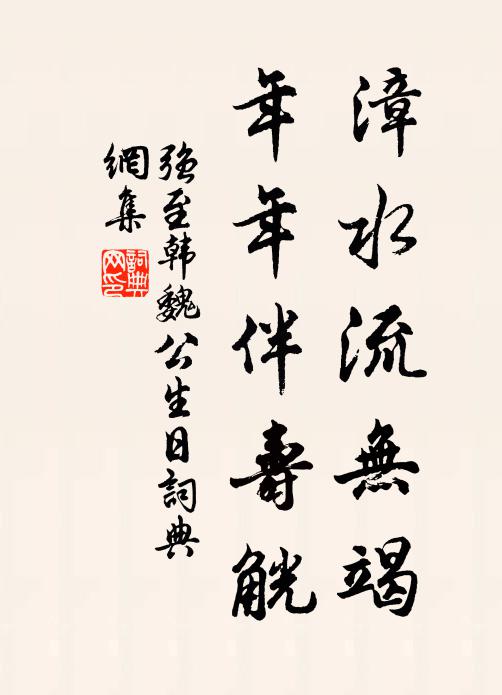 漳水流無竭
年年伴壽觥
强至韩魏公生日詞典
網集
詞典網印